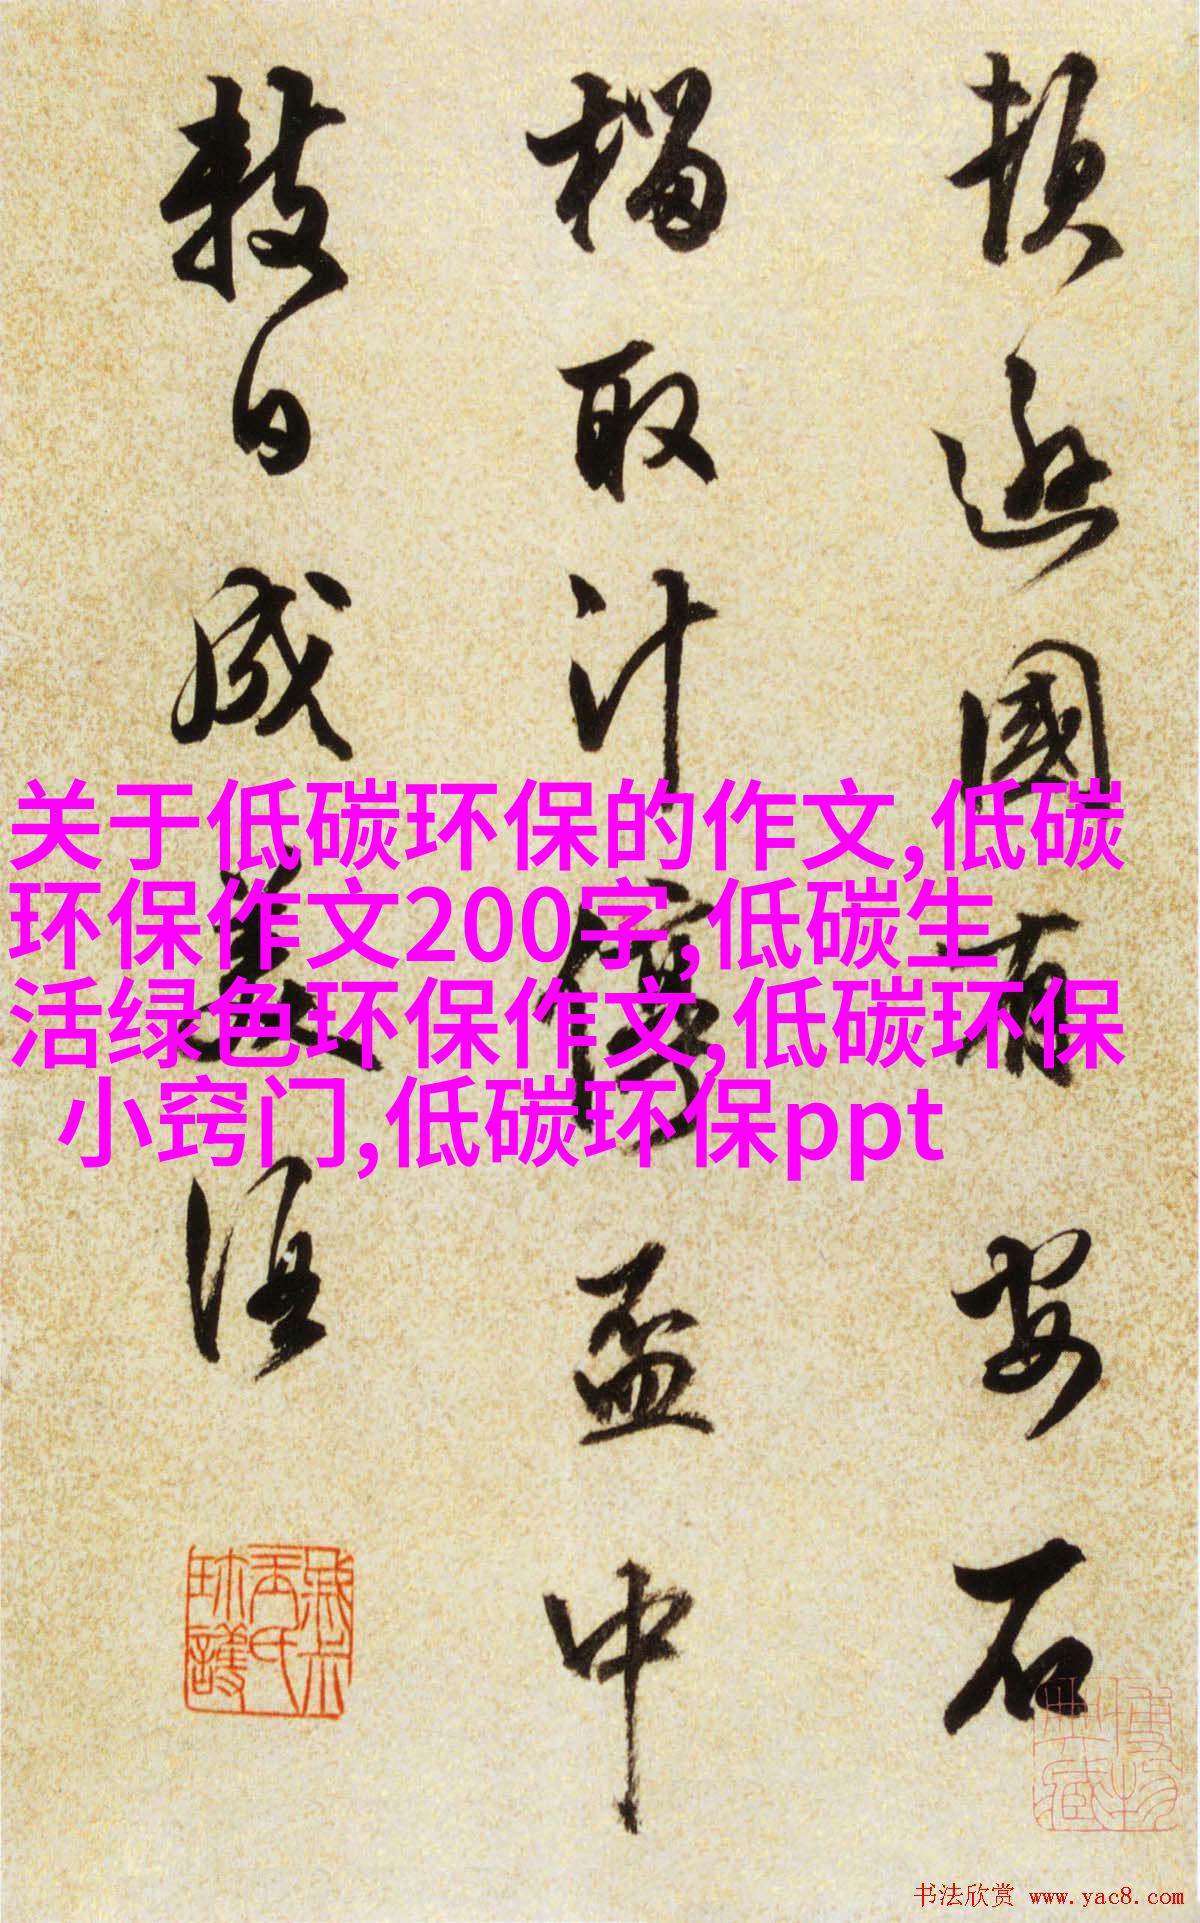 頓遜國有安石
榴取汁停盃中
數日成美酒
关于低碳环保的作文,低碳
环保作文200字,低碳生
活绿色环保作文,低碳环保
小窍门,低碳环保ppt
书法欣赏 www.yac8.com